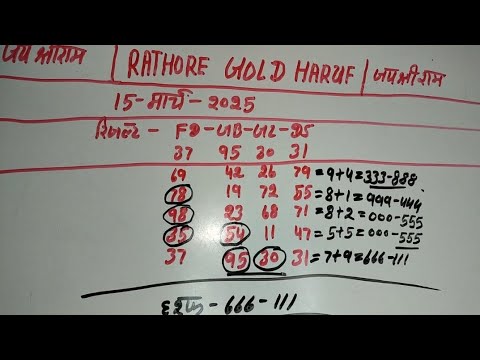 जय श्रीराम RATHORE GOLD HARUF जय श्री राम
15-मार्च-2025
रिजल्ट - FD-GB-GL-DS
37 95 30 31
69 42 26 79=9+4=333-888
78 19 72 55=8+1=999-444
98 23 68 71=8+2=000-555
65 54 11 47=5+5=000-555
37 95 30 31=7+9=666-111
हरूफ-666-111